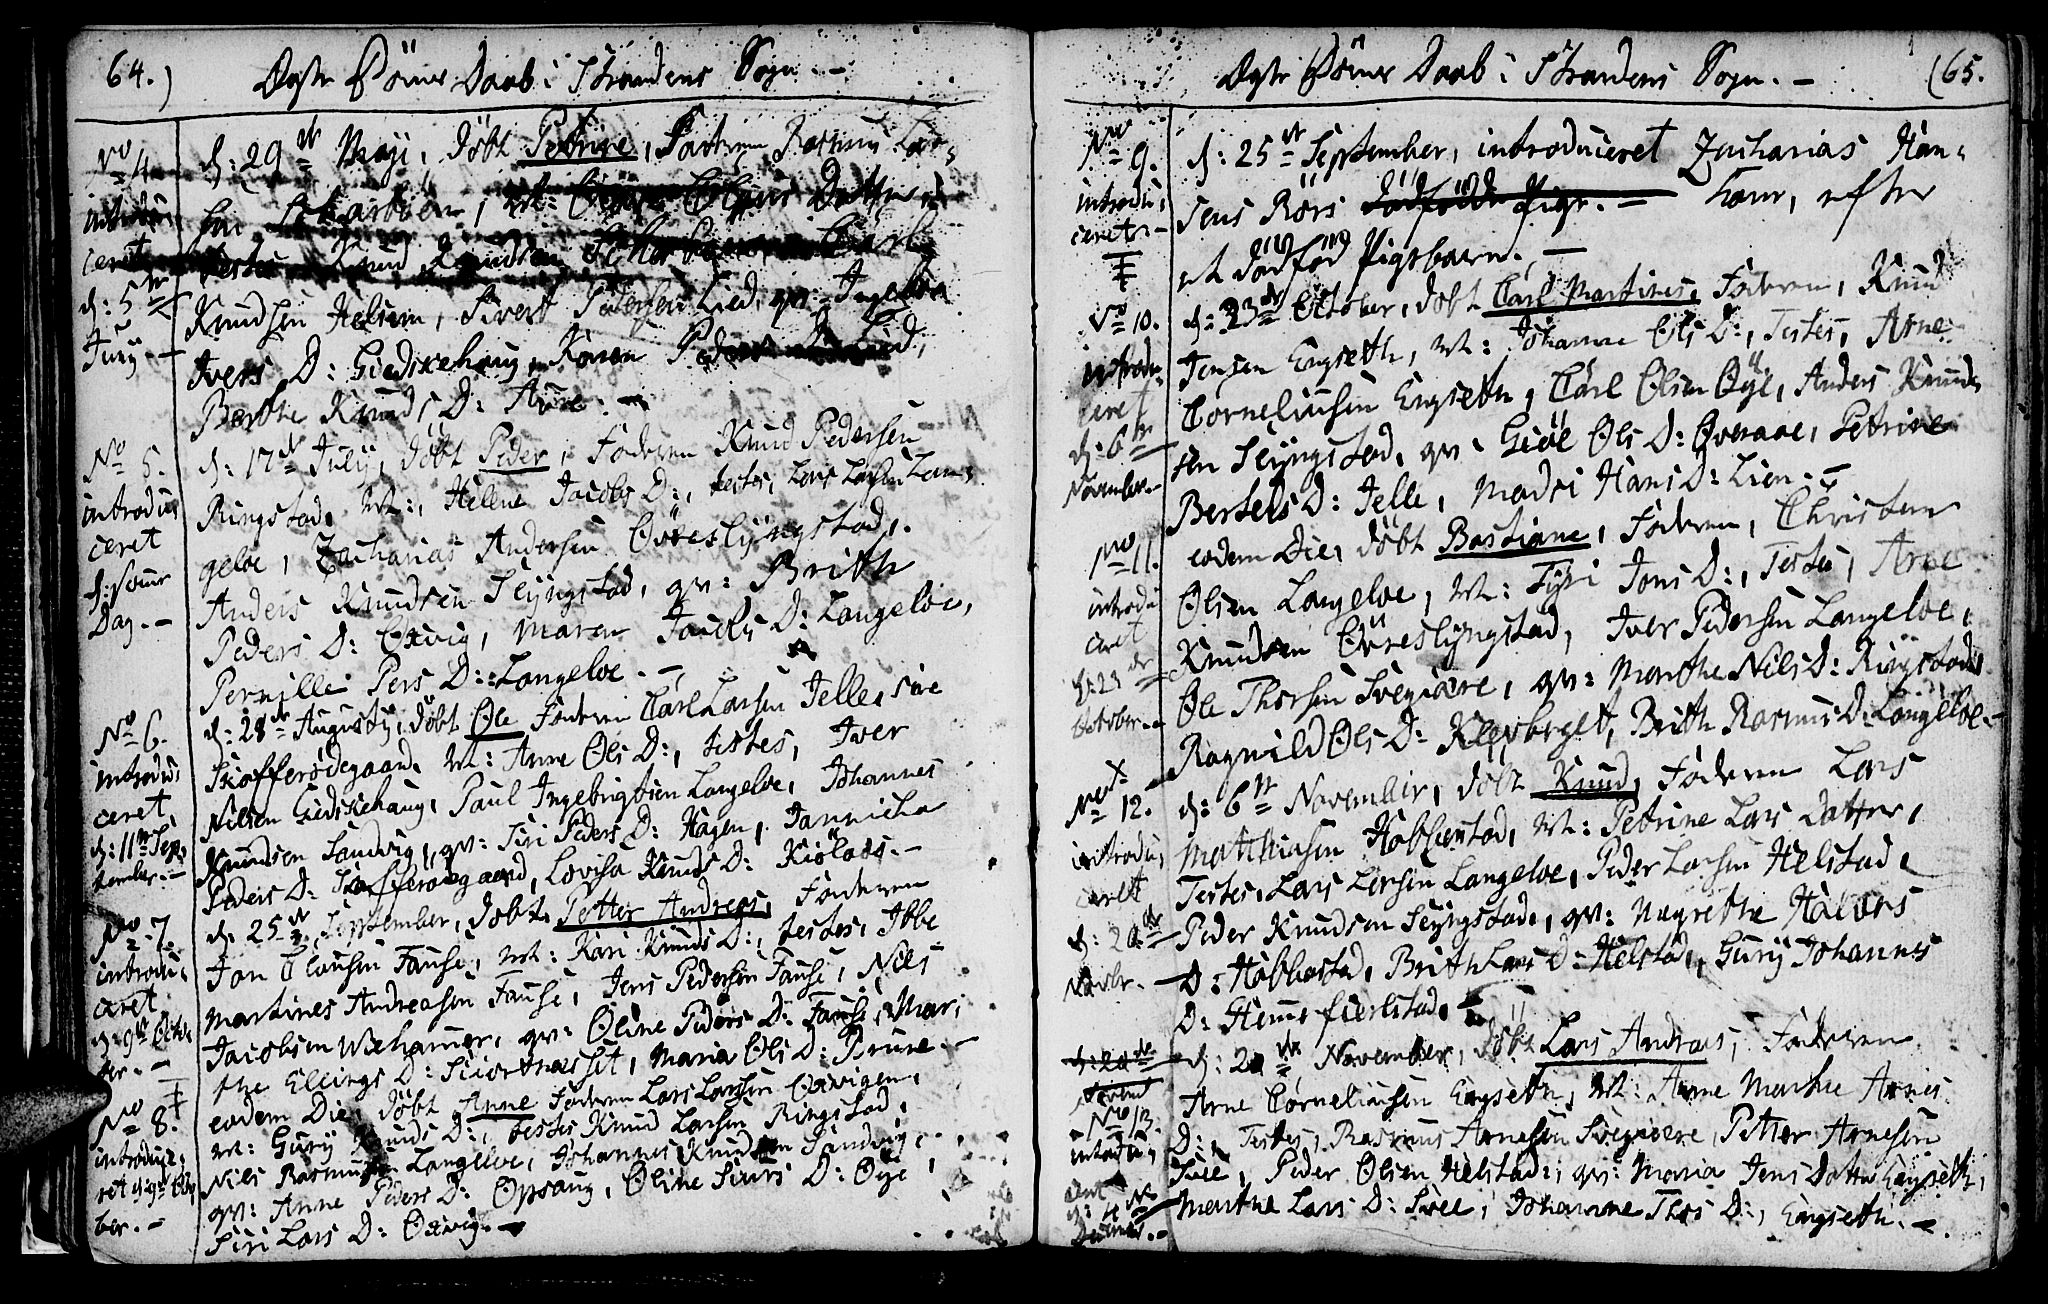 64.)
Ægte Börns Daab i Strandens Sogn. -
No 4
introdu-
ceret
d: 5te
Juny. -
d: 29de Maji, döbt Petrine, Faderen Rasmus Lar-
sen
testes Knud Knudsen
Knudsen Helsem, Sivert Pedersen Lied, qv: Ingebor
Ivers D: Giedskehaug, Karen Peders D: Lied,
Berthe Knuds D: Aure. -
No 5.
introdu-
ceret
d: samme
Dag. -
d: 17de July, döbt Peder, Faderen Knud Pedersen
Ringstad, M:, Helene Jacobs D:, testes, Lars Larsen Lan-
geloe, Zacharias Andersen Övreslyngstad,
Anders Knudsen Slyngstad, qv: Brith
Peders D: Oxvig, Maren Jacobs D: Langeloe,
Pernille Pers D: Langeloe. -
No 6.
introdu-
ceret,
d: 11te Sep-
tember. -
d: 28de Augusty, döbt Ole Faderen Carl Larsen Jelle, sive
Skofferödegaard, M: Anne Ols D:, testes, Iver
Nilsen Giedskehaug, Paul Ingebrigtsen Langeloe, Johannes
Knudsen Sandvig, qv: Siri Peders D: Hagen, Jannicha
Peders D: Skofferödegaard, Lovisa Knuds D: Kiölaas. -
No 7.
introdu-
ceret
d: 9de Octo-
ber. -
d. 25de September, döbt Petter Andreas, Faderen
Jon Clausen Fause, M: Kari Knuds D:, testes, Ibbe
Martines Andreasen Fause, Jens Pedersen Fause, Niels
Jacobsen Wiehammer, qv: Oline Peders D: Fause, Mar-
the Ellings D: Skiortnæsset, Maria Ols D: Brune. -
No 8.
introduce-
ret d: 9de Octo-
ber. -
eodem Die, döbt Anne Faderen Lars Larsen Oxvigen,
M: Gury Knuds D:, testes Knud Larsen Ringstad,
Nils Rasmussen Langeloe, Johannes Knudsen Sandvig,
qv: Anne Peders D: Opsang, Oline Siurs D: Öye,
Siri Lars D: Oxvig. -
Ægte Börns Daab i Strandens Sogn. -
(65.
No 9.
introdu-
ceret -
d: 25de September, introduceret Zacharias Han-
sens Rörs dödfödde Pige. - Kone, efter
et dödföd Pigebarn. -
No 10.
introdu-
ceret
d: 6te
November. -
d: 23de October, döbt Carl Martines, Faderen, Knud
Jensen Engseth, M: Johanne Ols D:, Testes, Arne
Corneliusen Engseth, Carl Olsen Öye, Anders Knud-
sen Slyngstad, qv: Giöe Ols D: Overaae, Petrine
Bertels D: Jelle, Madsi Hans D: Lien. -
No 11.
introdu-
ceret
d: 23de
October. -
eodem Die, döbt Bastiane, Faderen, Christen
Olsen Langeloe, M: Syri Jons D:, Testes, Arne
Knudsen Övreslyngstad, Iver Pedersen Langeloe,
Ole Thorsen Svegiære, qv: Marthe Nils D: Ringstad,
Ragnild Ols D: Klevberget, Brith Rasmus D: Langeloe. -
No 12.
introdu-
ceret
d: 20de
Novbr. -
d: 6te November, döbt Knud, Faderen Lars
Matthiasen Habbestad, M: Petrine Lars Datter,
Testes, Lars Larsen Langeloe, Peder Larsen Helstad,
Peder Knudsen Slyngstad, qv: Magrethe Halvors
D: Habbestad, Brith Lars D: Helstad, Gury Johannes
D: Stemmefierlstad. -
d: 20de
No 13.
introdu-
ceret
d: 4de
December. -
d: 20de November, döbt Lars Andreas, Faderen
Arne Corneliusen Engseth, M: Anne Marthe Arnes
D:, Testes, Rasmus Arnesen Svegiære, Petter Arnesen
Svee, Peder Olsen Helstad, qv: Maria Jens Datter Engseth,
Marthe Lars D: Svee, Johanne Thos D:, Engseth. -